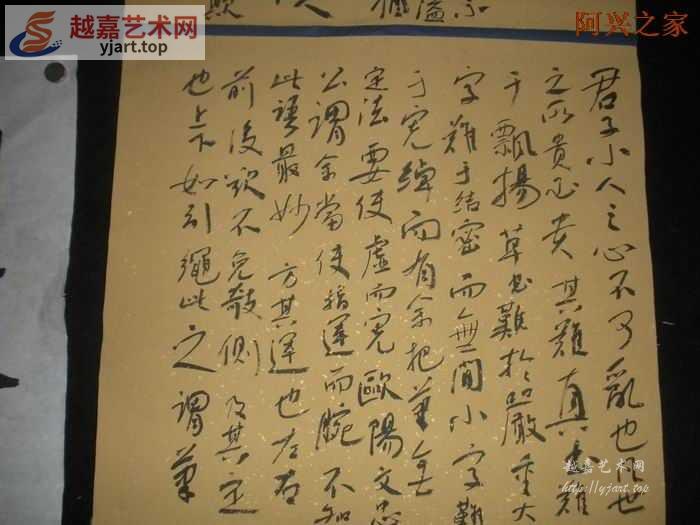 越嘉艺术网
yjart.top
阿兴之家
君子小人之心不可亂也
之所貴 貴其難真書難
于飄揚草書難於嚴重大
字難于結密而無間小字難
于寬綽而有余把筆無
定法要使虛而寬歐陽文忠
公謂余當使指運而腕不知
此語最妙方其運也左右
前後欹不免欹側及其定
也上下如引繩此之謂筆
越嘉艺术网
https://yjart.top